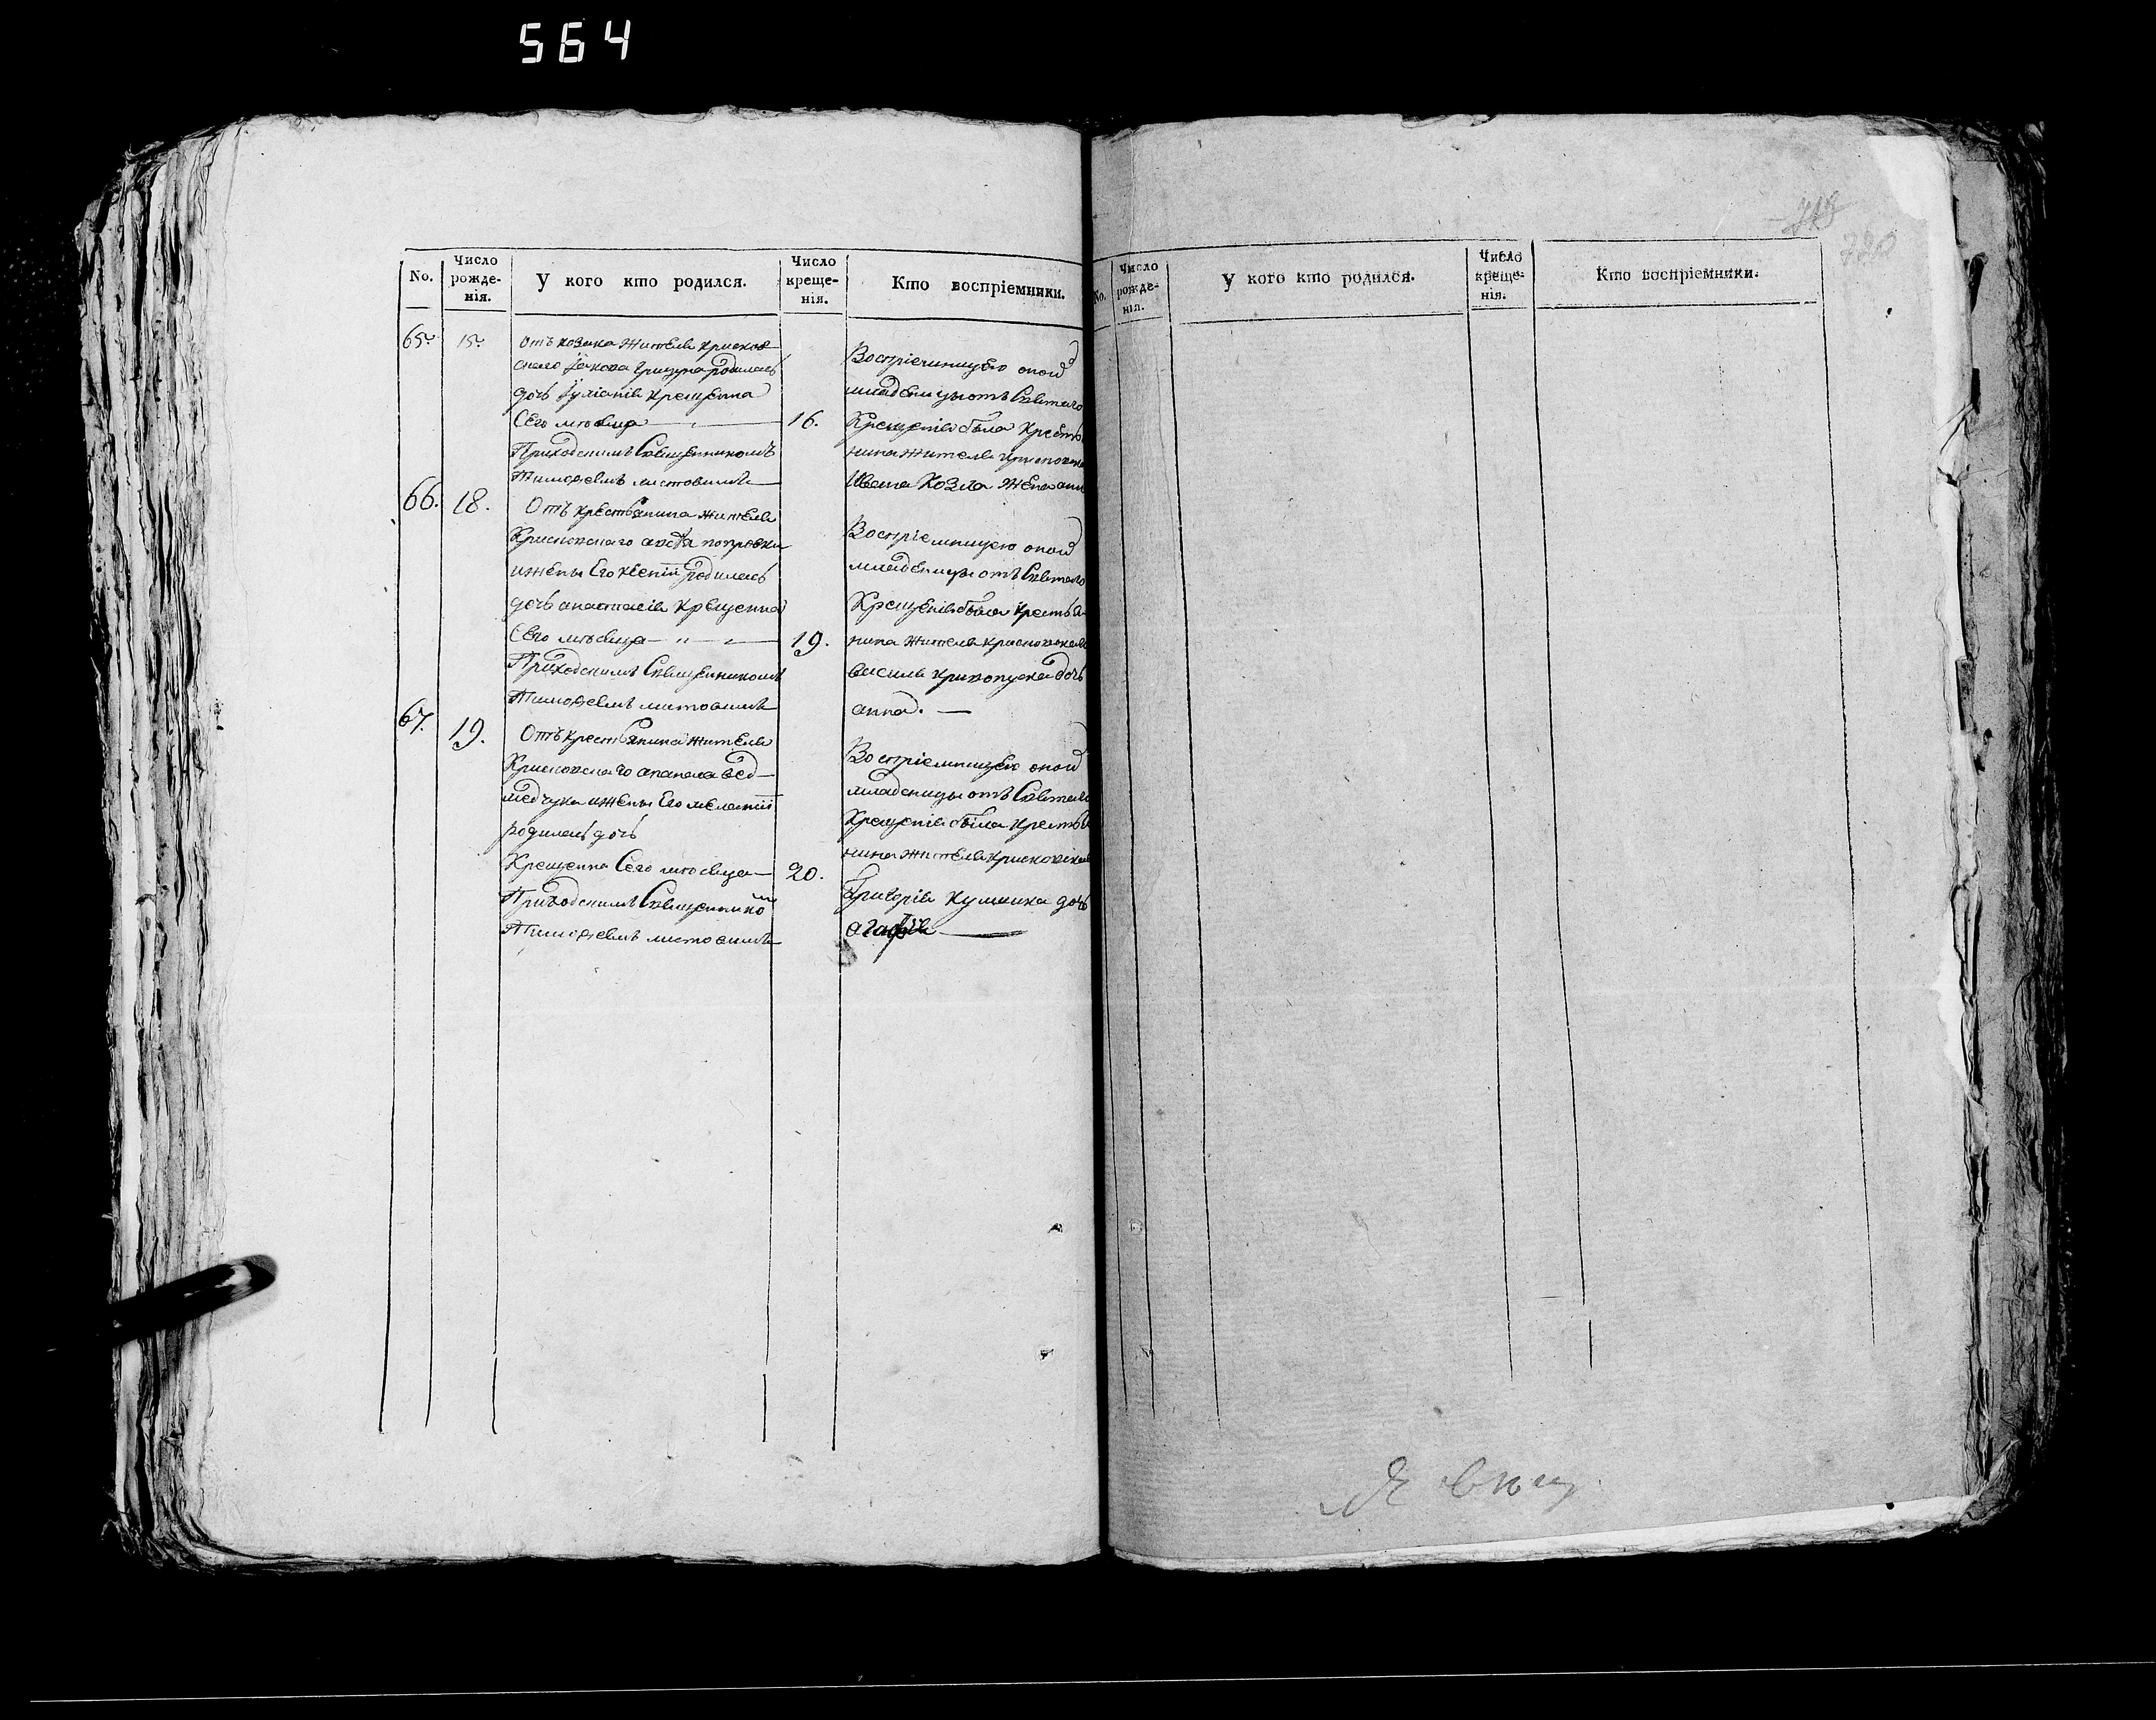 564
No.
Число рожде-нія.
У кого кто родился.
Число креще-нія.
Кто воспріемники.
65. 15. отъ козака жителя крисков
скаго Іакова родилась
дочь Іуліанія крещенна
Сего мѣсяца 16.
Приходскимъ Священникомъ
Тимофеемъ
Воспріемницею оной
младеницы отъ Святаго
Крещенія была Крестья
нина жителя
Ивана Козла жена
66. 18. Отъ крестьянина жителя
Крисковскаго
и жены Его Ксеніи родилась
дочь анастасія крещенна
Сего мѣсяца 19.
Приходскимъ Священникомъ
Тимофеемъ
Воспріемницею оной
младеницы отъ Святаго
Крещенія была крестья-
нина жителя
василія кривопуска дочь
анна.
67. 19. Отъ крестьянина жителя
Крисковскаго вед-
медчука и жены Его мелании
родилась дочь
Крещенна Сего мѣсяца 20.
Приходскимъ Священнико
Тимофеемъ
Воспріемницею оной
младеницы отъ Святаго
Крещенія была крестья
нина жителя
Григорія дочь
агафія
720
No.
Число рожде-нія.
У кого кто родился.
Число креще-нія.
Кто воспріемники.